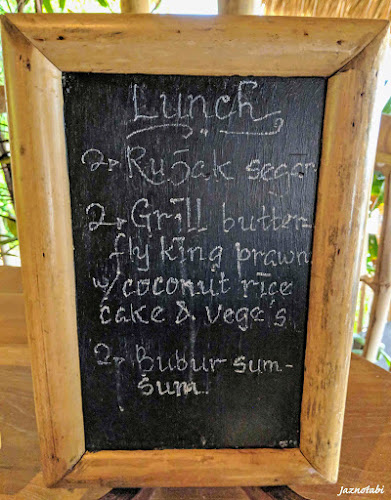 Lunch
2 Rujak segar
2 Grill butter
fly king prawn
w/coconut rice
cake & vege's
2 Bubur sum-
sum
jaznotabi